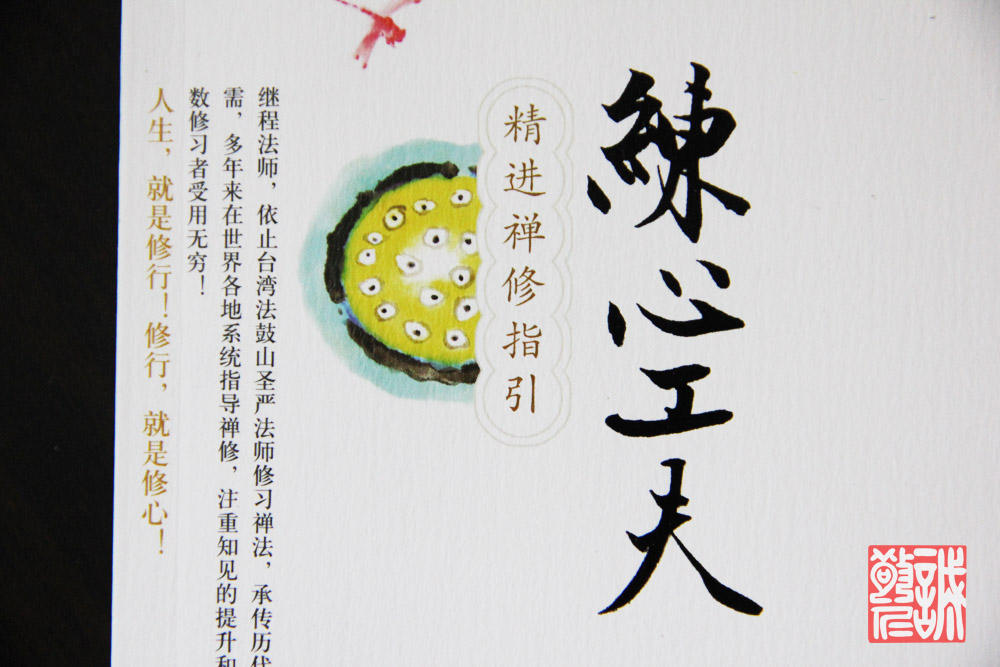 練心工夫
精进禅修指引
继程法师，依止台湾法鼓山圣严法师修习禅法，承传历代
需，多年来在世界各地系统指导禅修，注重知见的提升和
数修习者受用无穷！
人生，就是修行！修行，就是修心！